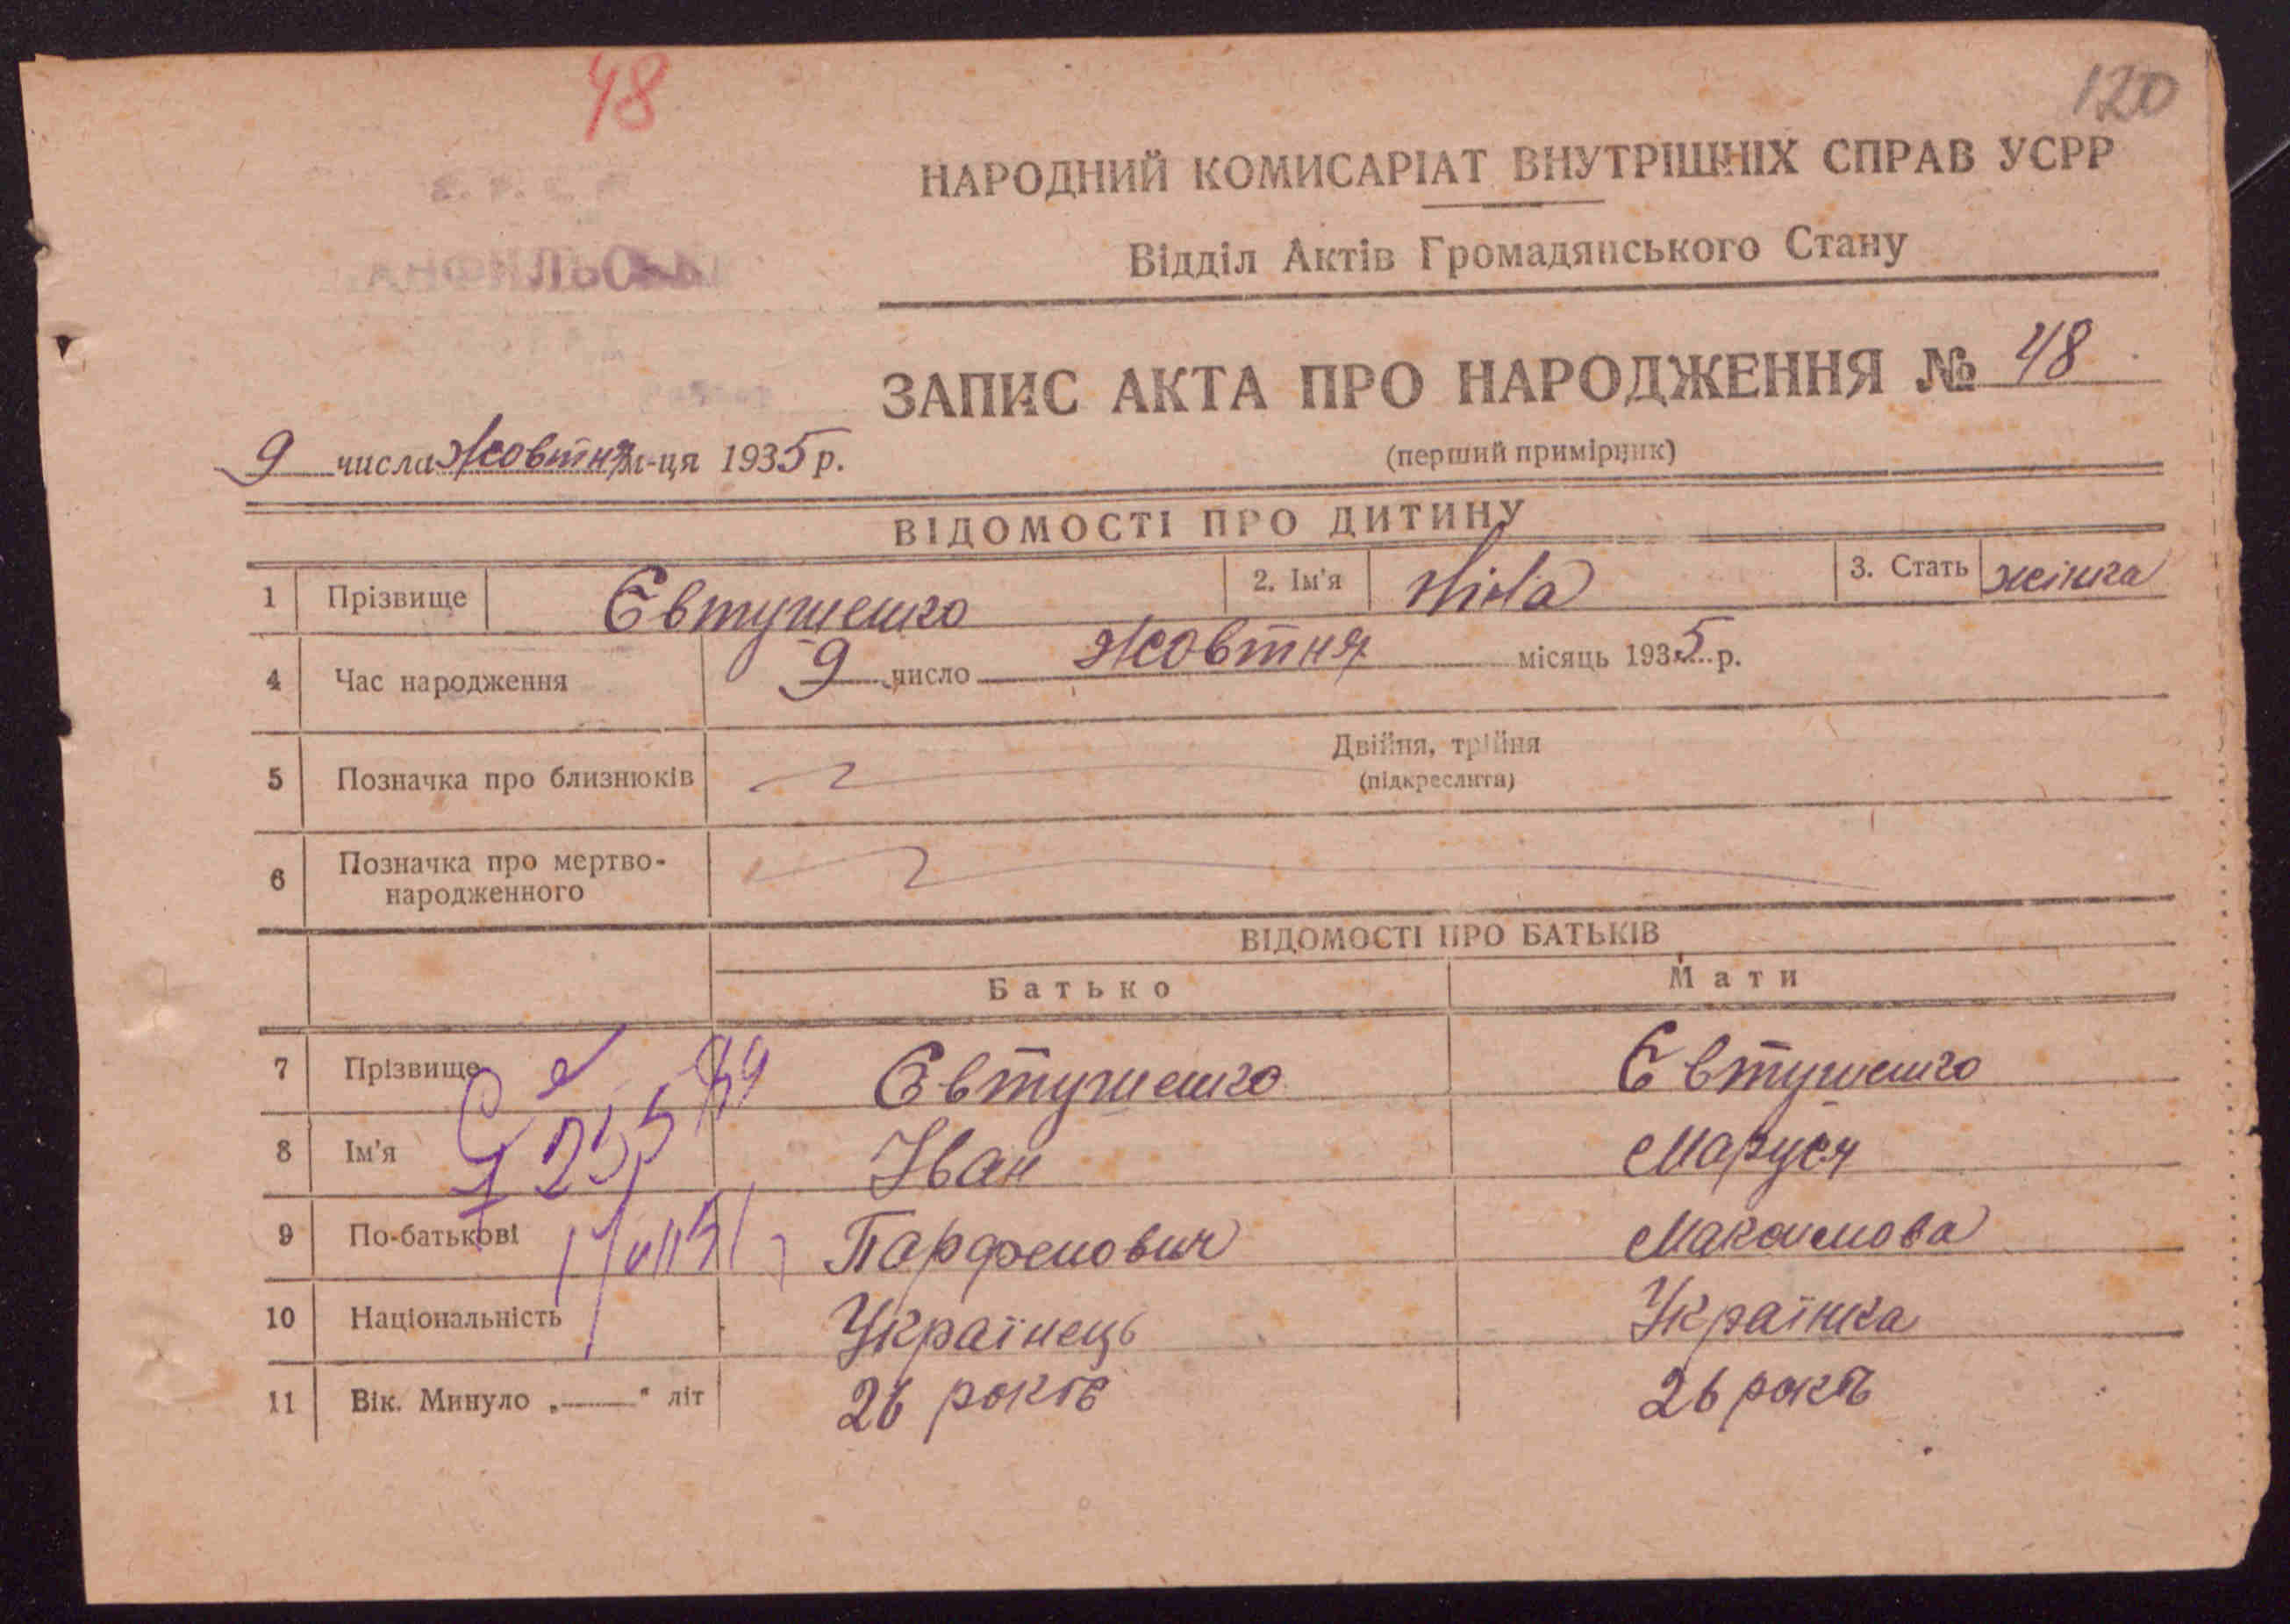 48
120
НАРОДНИЙ КОМИСАРІАТ ВНУТРІШНІХ СПРАВ УСРР
Відділ Актів Громадянського Стану
ЗАПИС АКТА ПРО НАРОДЖЕННЯ № 48
9 числа Жовтня м-ця 1935 р.
(перший примірник)
ВІДОМОСТІ ПРО ДИТИНУ
1 Прізвище Євтушенко 2. Ім'я Ніна 3. Стать жінка
4 Час народження 9 число Жовтня місяць 1935 р.
5 Позначка про близнюків Двійня, трійня
(підкреслити)
6 Позначка про мертво-
народженного
ВІДОМОСТІ ПРО БАТЬКІВ
Батько Мати
7 Прізвище Євтушенко Євтушенко
8 Ім'я Іван Маруся
9 По-батькові Парфенович Максимова
10 Національність Українець Українка
11 Вік. Минуло „——" літ 26 років 26 років